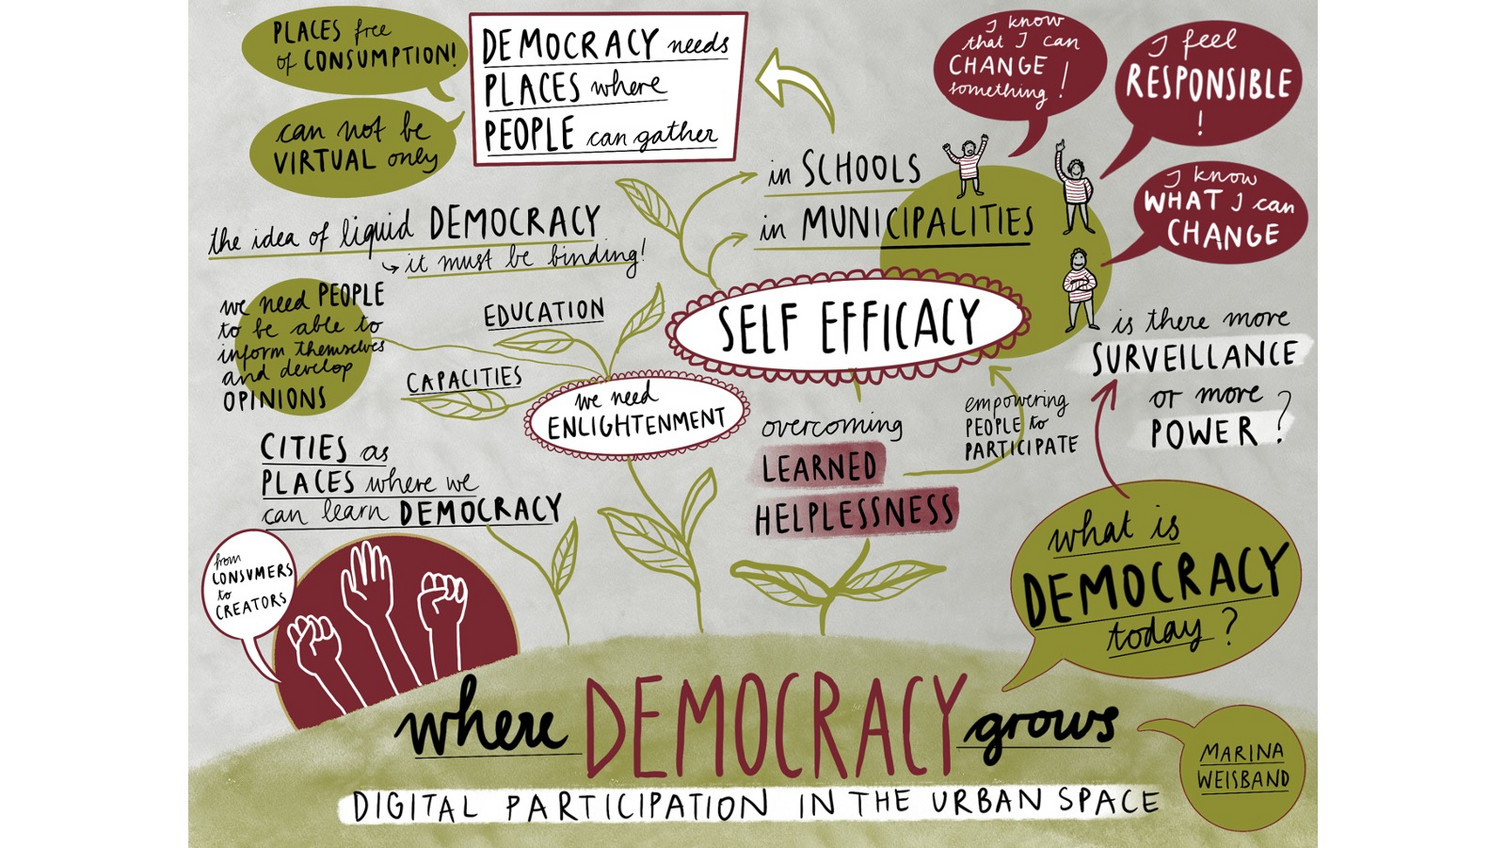 PLACES free
of CONSUMPTION!
can not be
VIRTUAL only
DEMOCRACY needs
PLACES where
PEOPLE can gather
I know
that I can
CHANGE
something!
I feel
RESPONSIBLE
!
I know
WHAT I can
CHANGE
in SCHOOLS
in MUNICIPALITIES
the idea of liquid DEMOCRACY
it must be binding!
we need PEOPLE
to be able to
inform themselves
and develop
OPINIONS
EDUCATION
CAPACITIES
we need
ENLIGHTENMENT
SELF EFFICACY
is there more
SURVEILLANCE
or more
POWER?
overcoming
LEARNED
HELPLESSNESS
empowering
PEOPLE to
PARTICIPATE
CITIES as
PLACES where we
can learn DEMOCRACY
from
CONSUMERS
to
CREATORS
what is
DEMOCRACY
today?
where DEMOCRACY grows
DIGITAL PARTICIPATION IN THE URBAN SPACE
MARINA
WEISBAND